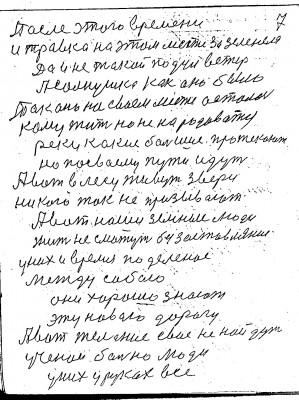 7
После этого времени
и травка на этом месте зазеленела
Да и не такой подул ветер
как оно было
Так оно на своем месте осталось
кому жит но не народовату
реки какие большие протекают
но посваему пути идут
Авот влесу живут звери
никого так не призывают
Авот наши земние люди
жит не смогут
уних и время поделеное
между сабою
они хорошо знают
эту новаю дорогу
Авот желание свое не найдут
ученои люди
уних у руках все